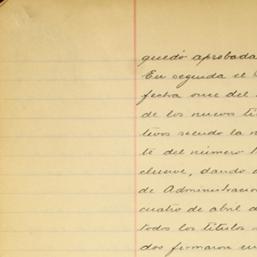 quedó aprobada
En seguida el
fecha once del
de los nuevos
tivos siendo la
te del número
clusive, dando
de Administracion
cuatro de abril d
todos los títulos
dos firmaron en